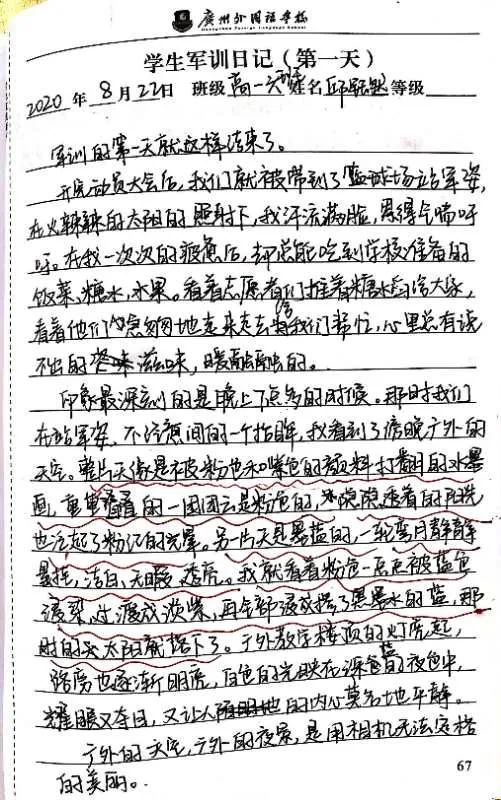 廣州外国語学校
Guangzhou Foreign Language School
学生军训日记(第一天)
2020 年 8 月 22日 班级 高一 姓名 等级
军训的第一天就这样结束了。
开完动员大会后,我们就被带到了篮球场站军姿,
在火辣辣的太阳的照射下,我汗流满脸,累得气喘吁
吁。在我一次次的疲惫后,却总能吃到学校准备的
饭菜、糖水、水果。看着志愿者们推着糖水到给大家,
看着他们匆匆地走来走去给我们帮忙,心里总有说
不出的滋味,暖融融的。
印象最深刻的是晚上7点多的时候。那时我们
在站军姿,不经意间的一个抬眸,我看到了傍晚广外的
天空。整片天像是被粉色和紫色的颜料打翻的水墨
画,重重叠叠的一团团云是粉色的,隐隐透着的阳光
也泛起了粉红的光晕。另一片天是墨蓝的,一轮弯月静静
悬挂,洁白,无暇,透亮。我就看着粉色一点点被蓝色
浸染,过渡成淡紫,再全部浸成搭了黑墨水的蓝,那
时的天太阳就落下了。广外教学楼顶的灯亮起,
路旁也逐渐明亮,白色的光映在深蓝的夜色中,
耀眼又夺目,又让人的内心莫名地平静。
广外的天空,广外的夜景,是用相机无法定格
的美丽。
67